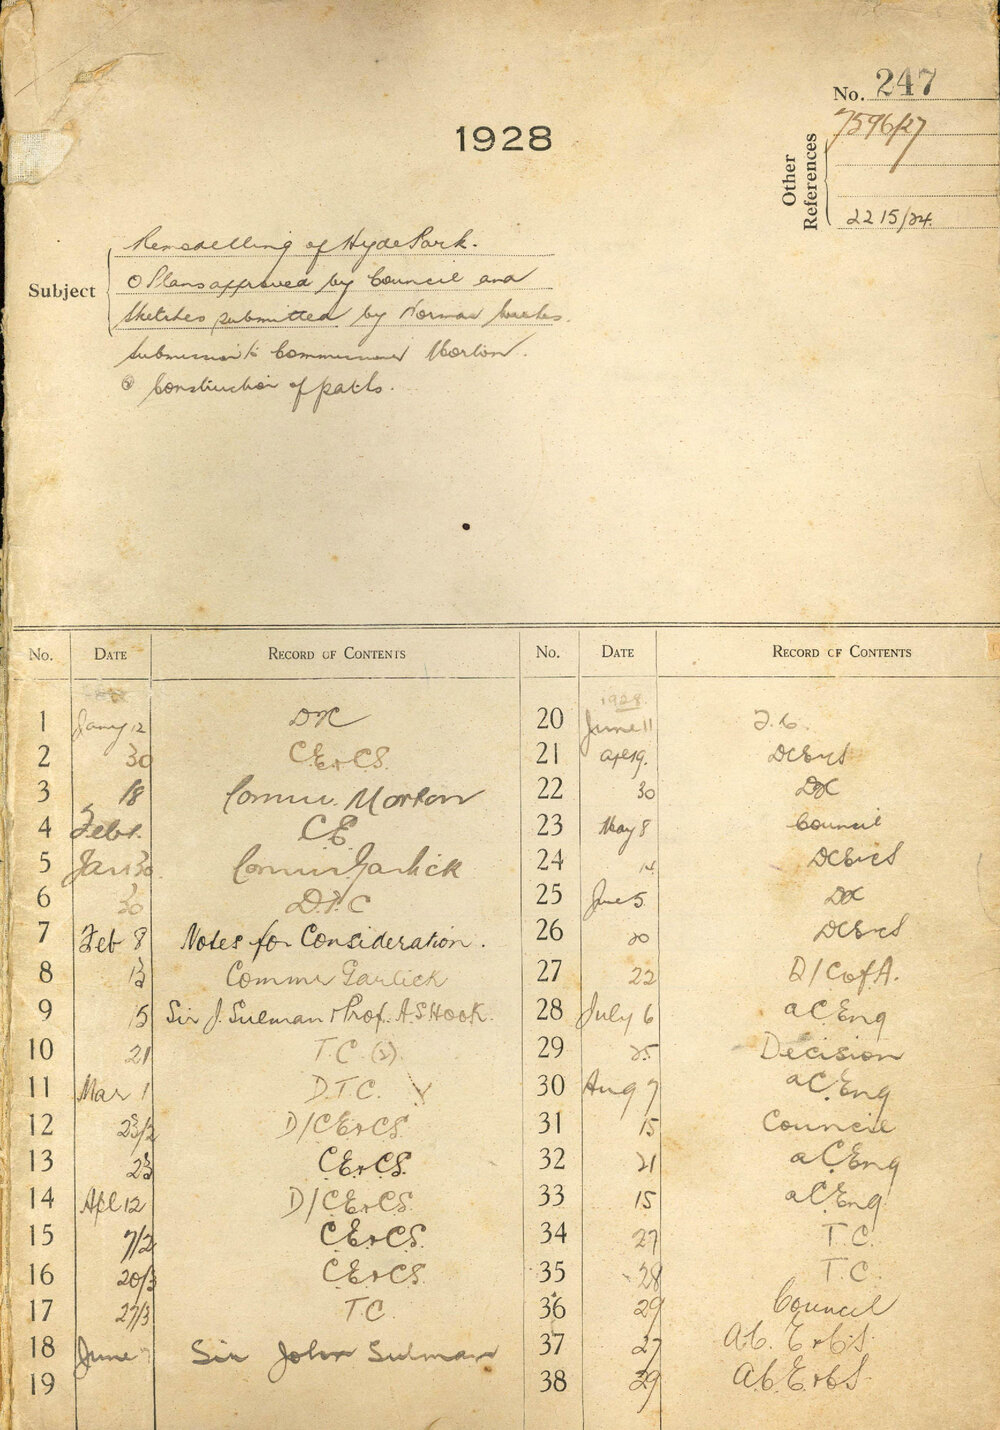 No. 247
1928
Other References
7596/27
2215/24
Subject
Remodelling of Hyde Park.
Plans approved by Council and
sketches submitted by Norman
Commissioner Morton.
Construction of paths.
No. DATE RECORD OF CONTENTS
1 Jany 12
2 30 C.E. & C.S.
3 18 Commr. Morton
4 Feby C.E.
5 Jan 30 Commr Garlick
6 30 D.T.C
7 Feb 8 Notes for Consideration.
8 13 Commr Garlick
9 15 Sir J. Sulman & Prof. A.S Hook.
10 21 T.C (2).
11 Mar 1 D.T.C.
12 23/2 D/C.E. & C.S.
13 23 C.E. & C.S.
14 Apl 12 D/C.E. & C.S.
15 7/2 C.E. & C.S.
16 20/3 C.E. & C.S.
17 27/3 T C
18 June Sir John Sulman
19
No. DATE RECORD OF CONTENTS
1928
20 June 11 T.C.
21 Apl 19.
22 30
23 May 8 Council
24 14
25 June 5
26 20
27 22 D/C of A.
28 July 6 a C. Eng
29 25 Decision
30 Aug 7 a C. Eng
31 15 Council
32 21 a C. Eng
33 15 a C. Eng
34 27 T.C.
35 28 T.C.
36 29 Council
37 27
38 29